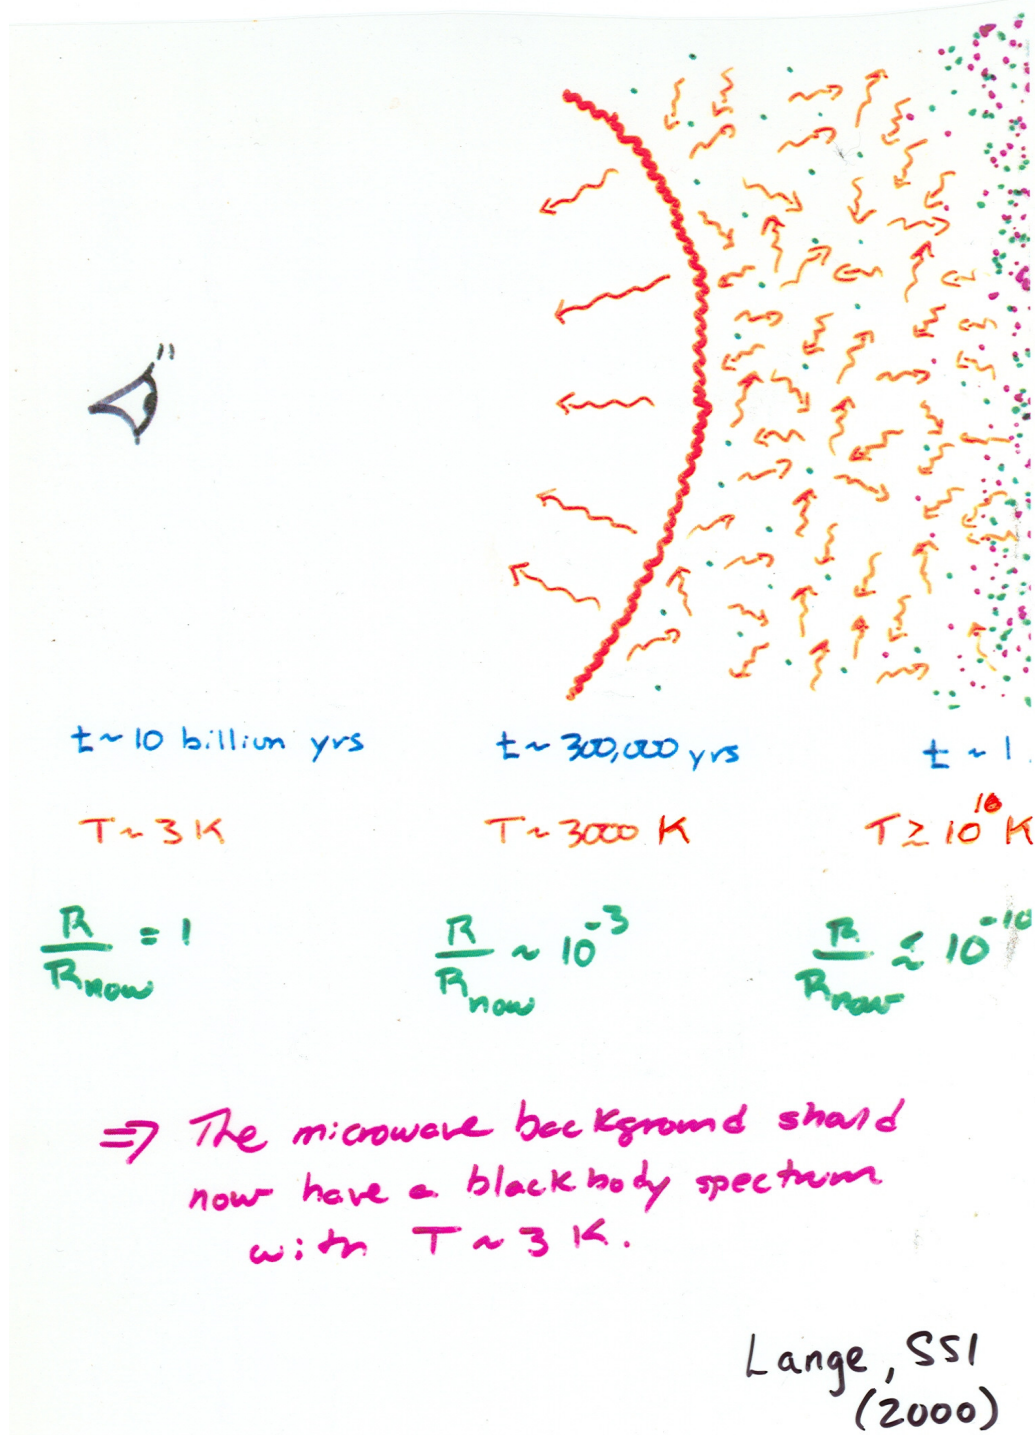 t ~ 10 billion yrs
t ~ 300,000 yrs
t ~ 1
T ~ 3 K
T ~ 3000 K
T ≳ 10^10 K
R/R_now = 1
R/R_now ~ 10^-3
R/R_now ≲ 10^-10
⇒ The microwave background should
now have a blackbody spectrum
with T ~ 3 K.
Lange, SSI
(2000)